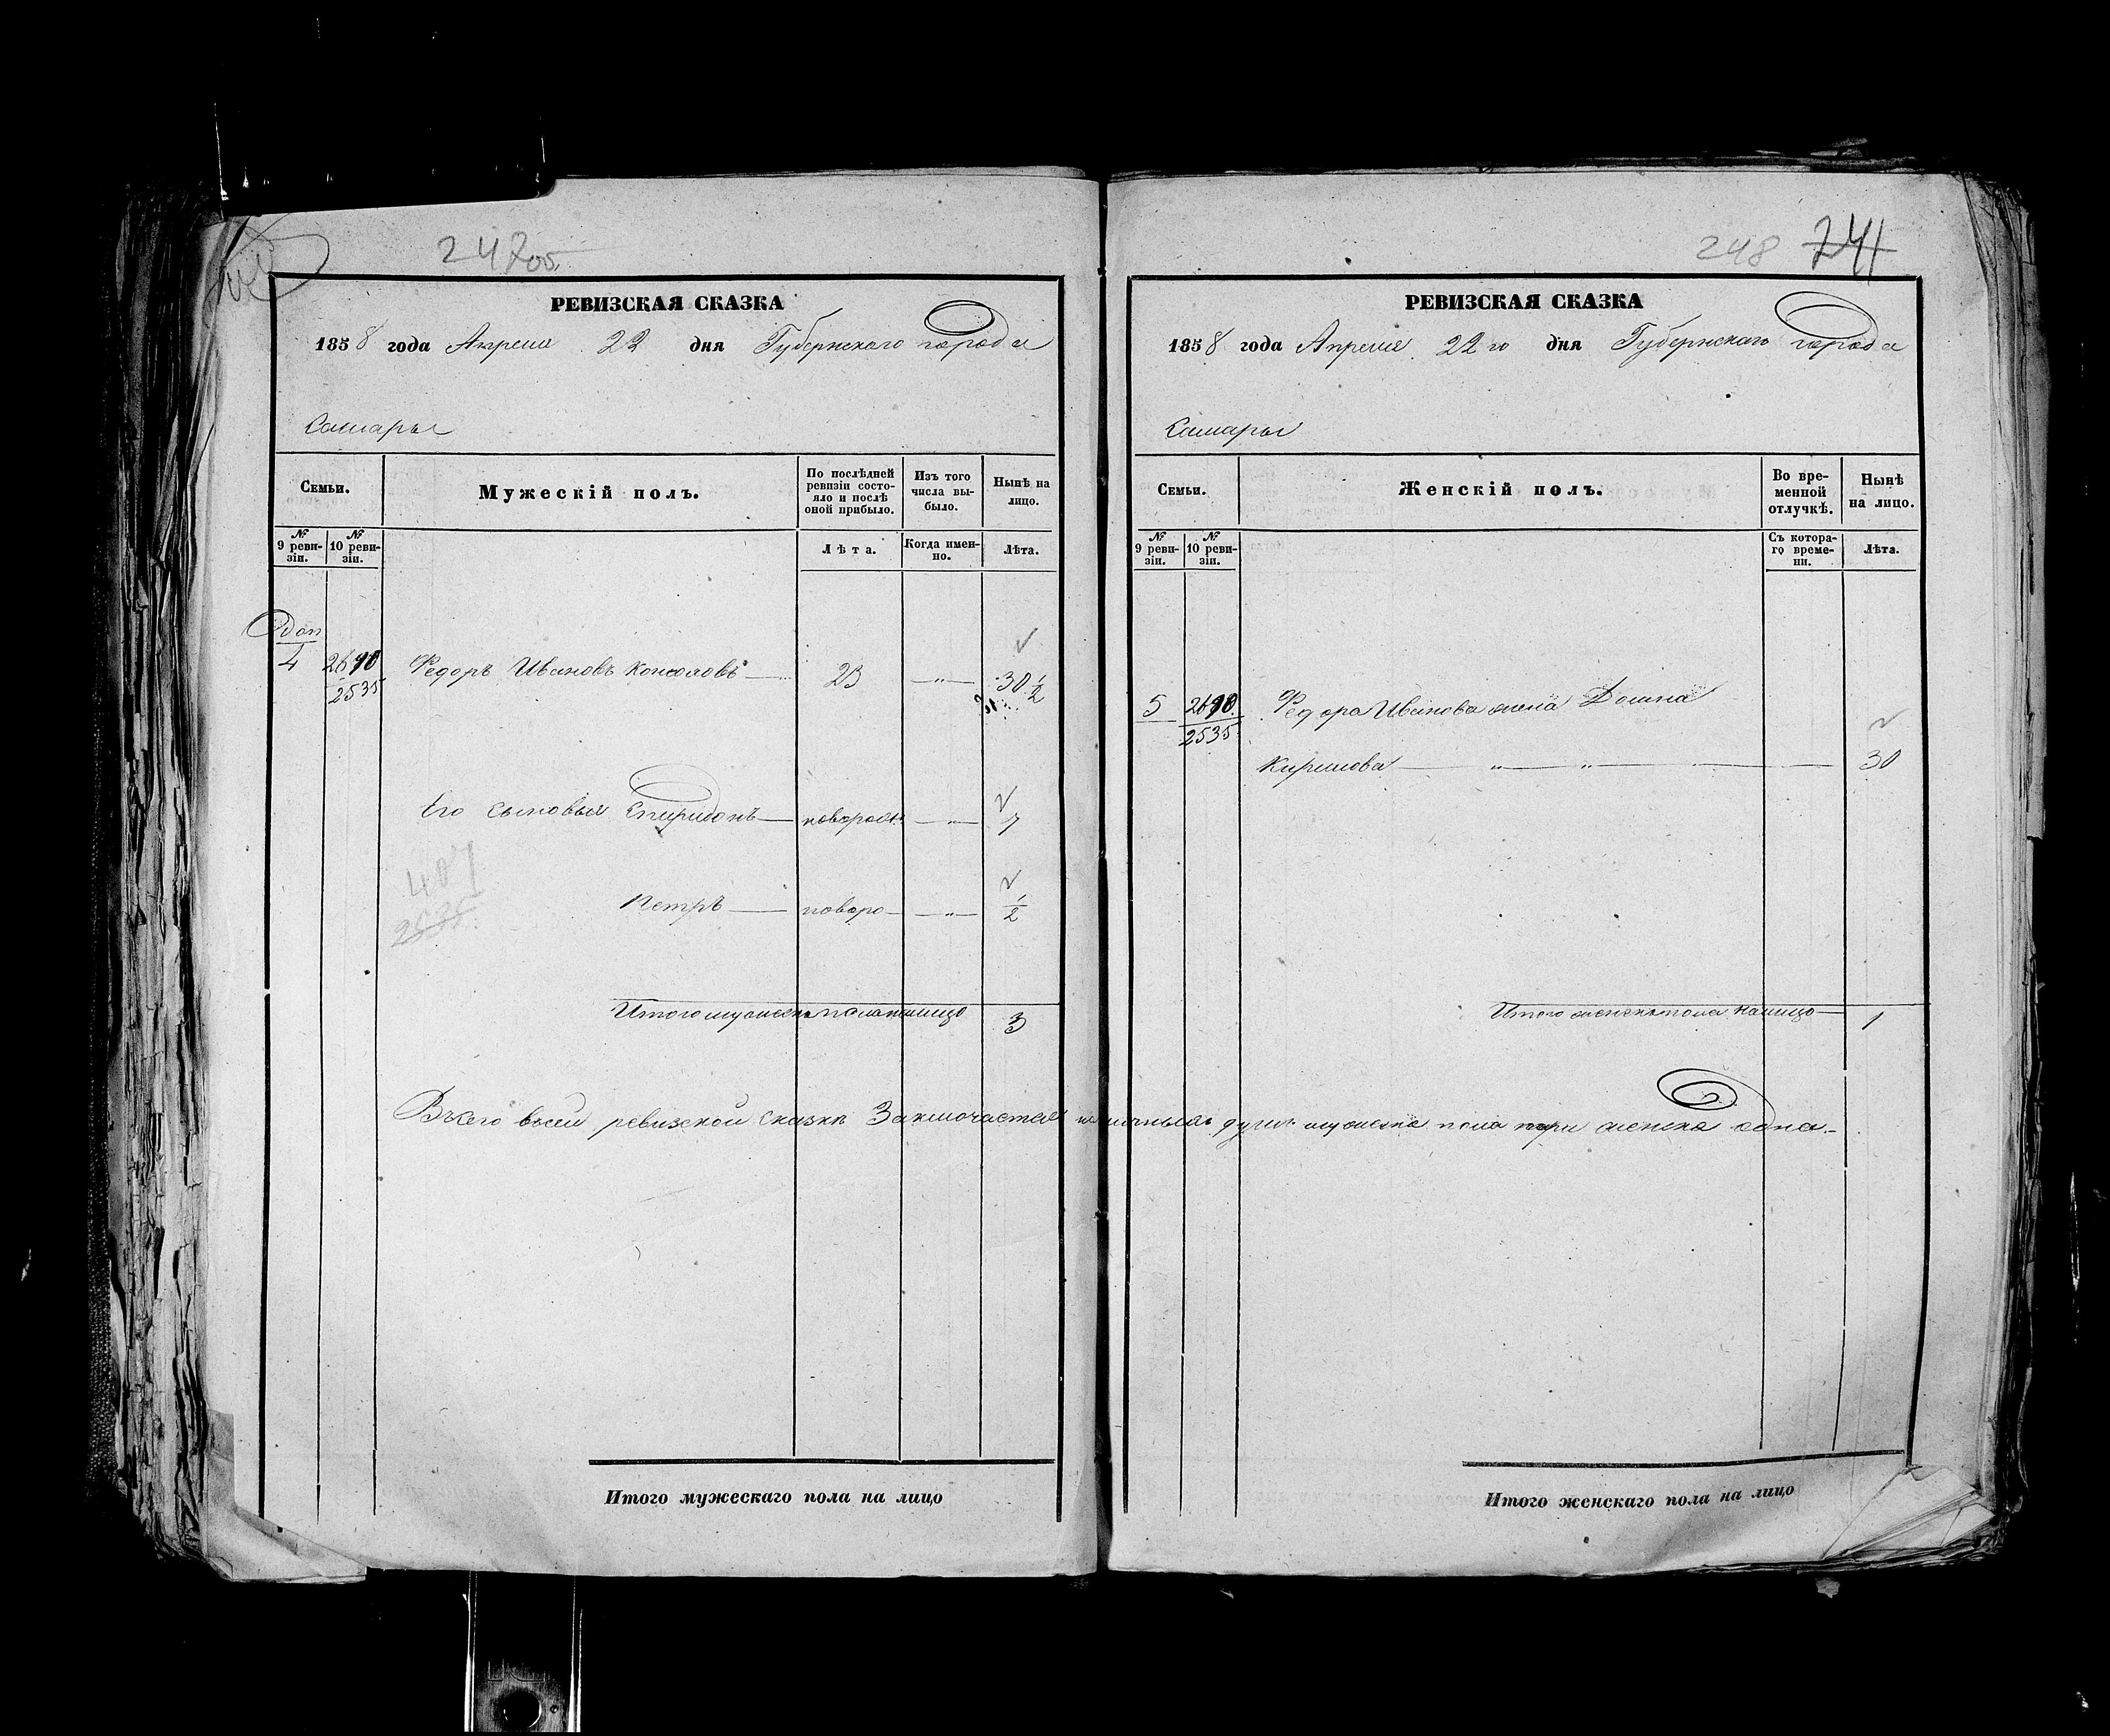 247об.
РЕВИЗСКАЯ СКАЗКА
1858 года Апреля 22 дня Губернскаго города
Самары
Семьи.
Мужескій полъ.
По послѣдней ревизіи состояло и послѣ оной прибыло.
Изъ того числа выбыло.
Нынѣ на лицо.
№ 9 ревизіи.
№ 10 ревизіи.
Лѣта.
Когда именно.
Лѣта.
Доп
4 2535 Федоръ Ивановъ 23 — " — 30 1/2
Его сыновья Спиридонъ — — " — 7
407
2535
Петръ — — " — 1/2
Итого мужеска пола налицо 3
248 241
РЕВИЗСКАЯ СКАЗКА
1858 года Апреля 22го дня Губернскаго города
Самары
Семьи.
Женскій полъ.
Во временной отлучкѣ.
Нынѣ на лицо.
№ 9 ревизіи.
№ 10 ревизіи.
Съ котораго времени.
Лѣта.
5 2535 Федора Иванова жена Домна
Кирилова — " — " — 30
Итого женска пола налицо — 1
всей ревизской сказкѣ Заключается наличныхъ душъ мужеска пола три женска одна.
Итого мужескаго пола на лицо
Итого женскаго пола на лицо